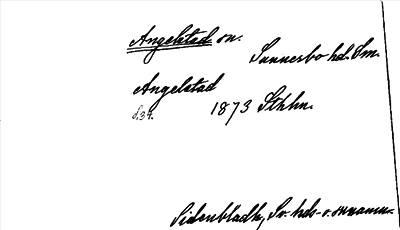 Angelstad sn.
Sunnerbo hd. Sm.
Angelstad
s. 34. 1873 Sthlm.
Sidenbladh, Sv. hds- o. sn namn.